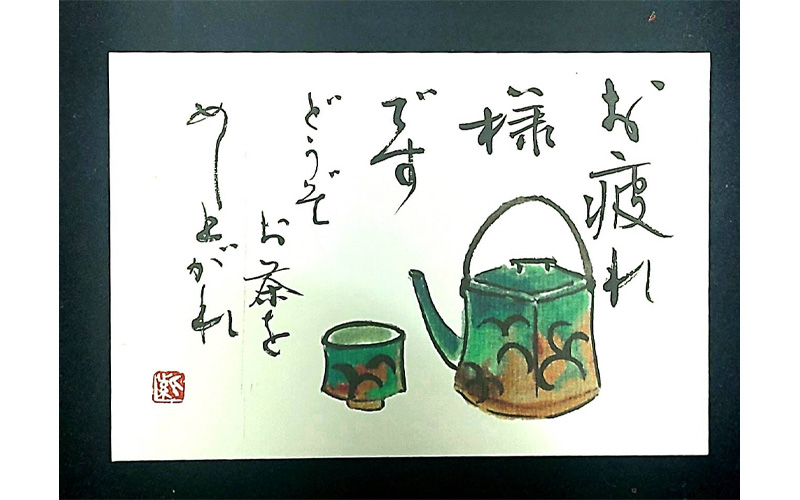 お疲れ
様
です
どうぞ
お茶を
めし上がれ